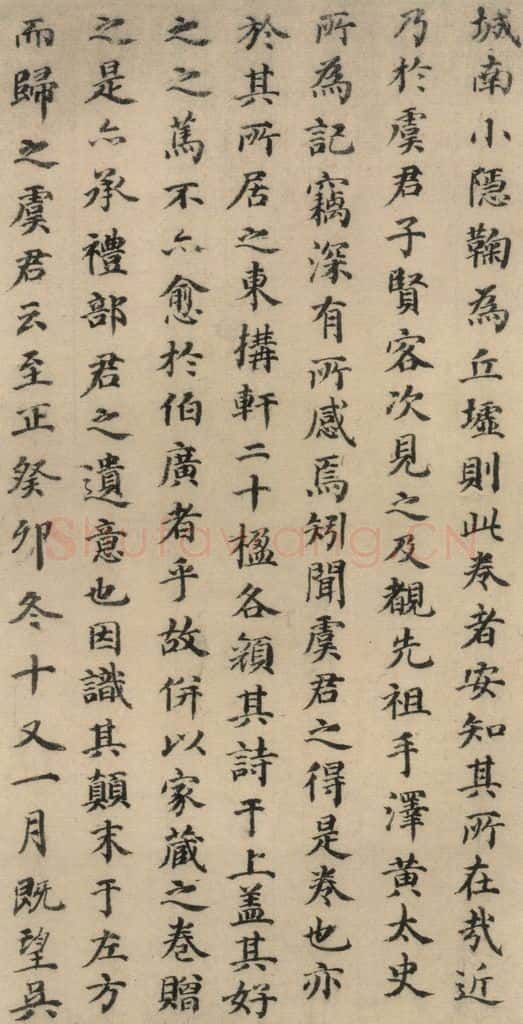 城南小隱鞠為丘墟則此卷者安知其所在哉近
乃於虞君子賢客次見之及觀先祖手澤黃太史
所為記竊深有所感焉矧聞虞君之得是卷也亦
於其所居之東搆軒二十楹各顏其詩于上盖其好
之之篤不亦愈於伯廣者乎故併以家藏之卷贈
之是亦承禮部君之遺意也因識其顛末于左方
而歸之虞君云至正癸卯冬十又一月既望吳
Shufawang.CN